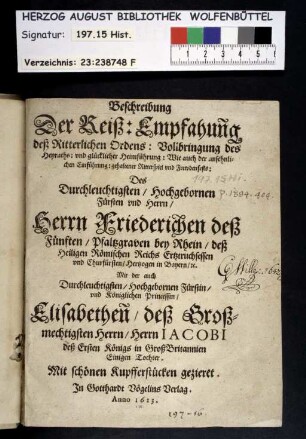 HERZOG AUGUST BIBLIOTHEK WOLFENBÜTTEL
Signatur: 197.15 Hist.
Verzeichnis: 23:238748 F
Beschreibung
Der Reiß: Empfahung
deß Ritterlichen Ordens: Volbringung des
Heyraths: vnd glücklicher Heimführung: Wie auch der ansehnlichen
Einführung: gehaltener Ritterspiel vnd Frewdenfests:
Des
Durchleuchtigsten / Hochgebornen
Fürsten vnd Herrn /
Herrn Friederichen deß
Fünften / Pfaltzgraven bey Rhein / deß
Heiligen Römischen Reichs Ertztruchsessen
vnd Churfürsten / Hertzogen in Bayern / ꝛc.
Mit der auch
Durchleuchtigsten / Hochgebornen Fürstin /
vnd Königlichen Princessin /
Elisabethen / deß Groß-
mechtigsten Herrn / Herrn IACOBI
deß Ersten Königs in Groß Britannien
Einigen Tochter.
Mit schönen Kupfferstücken gezieret.
In Gotthardt Vögelins Verlag.
Anno 1613.
197-15.